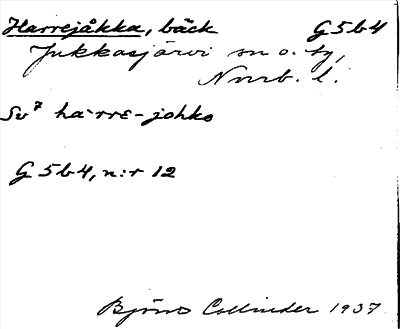 Harrejåkka, bäck G5b4
Jukkasjärvi sn o. by,
Norrb. l.
Sv⁷ ha·rrɛ-johko
G 5b4, n:r 12
Björn Collinder 1937